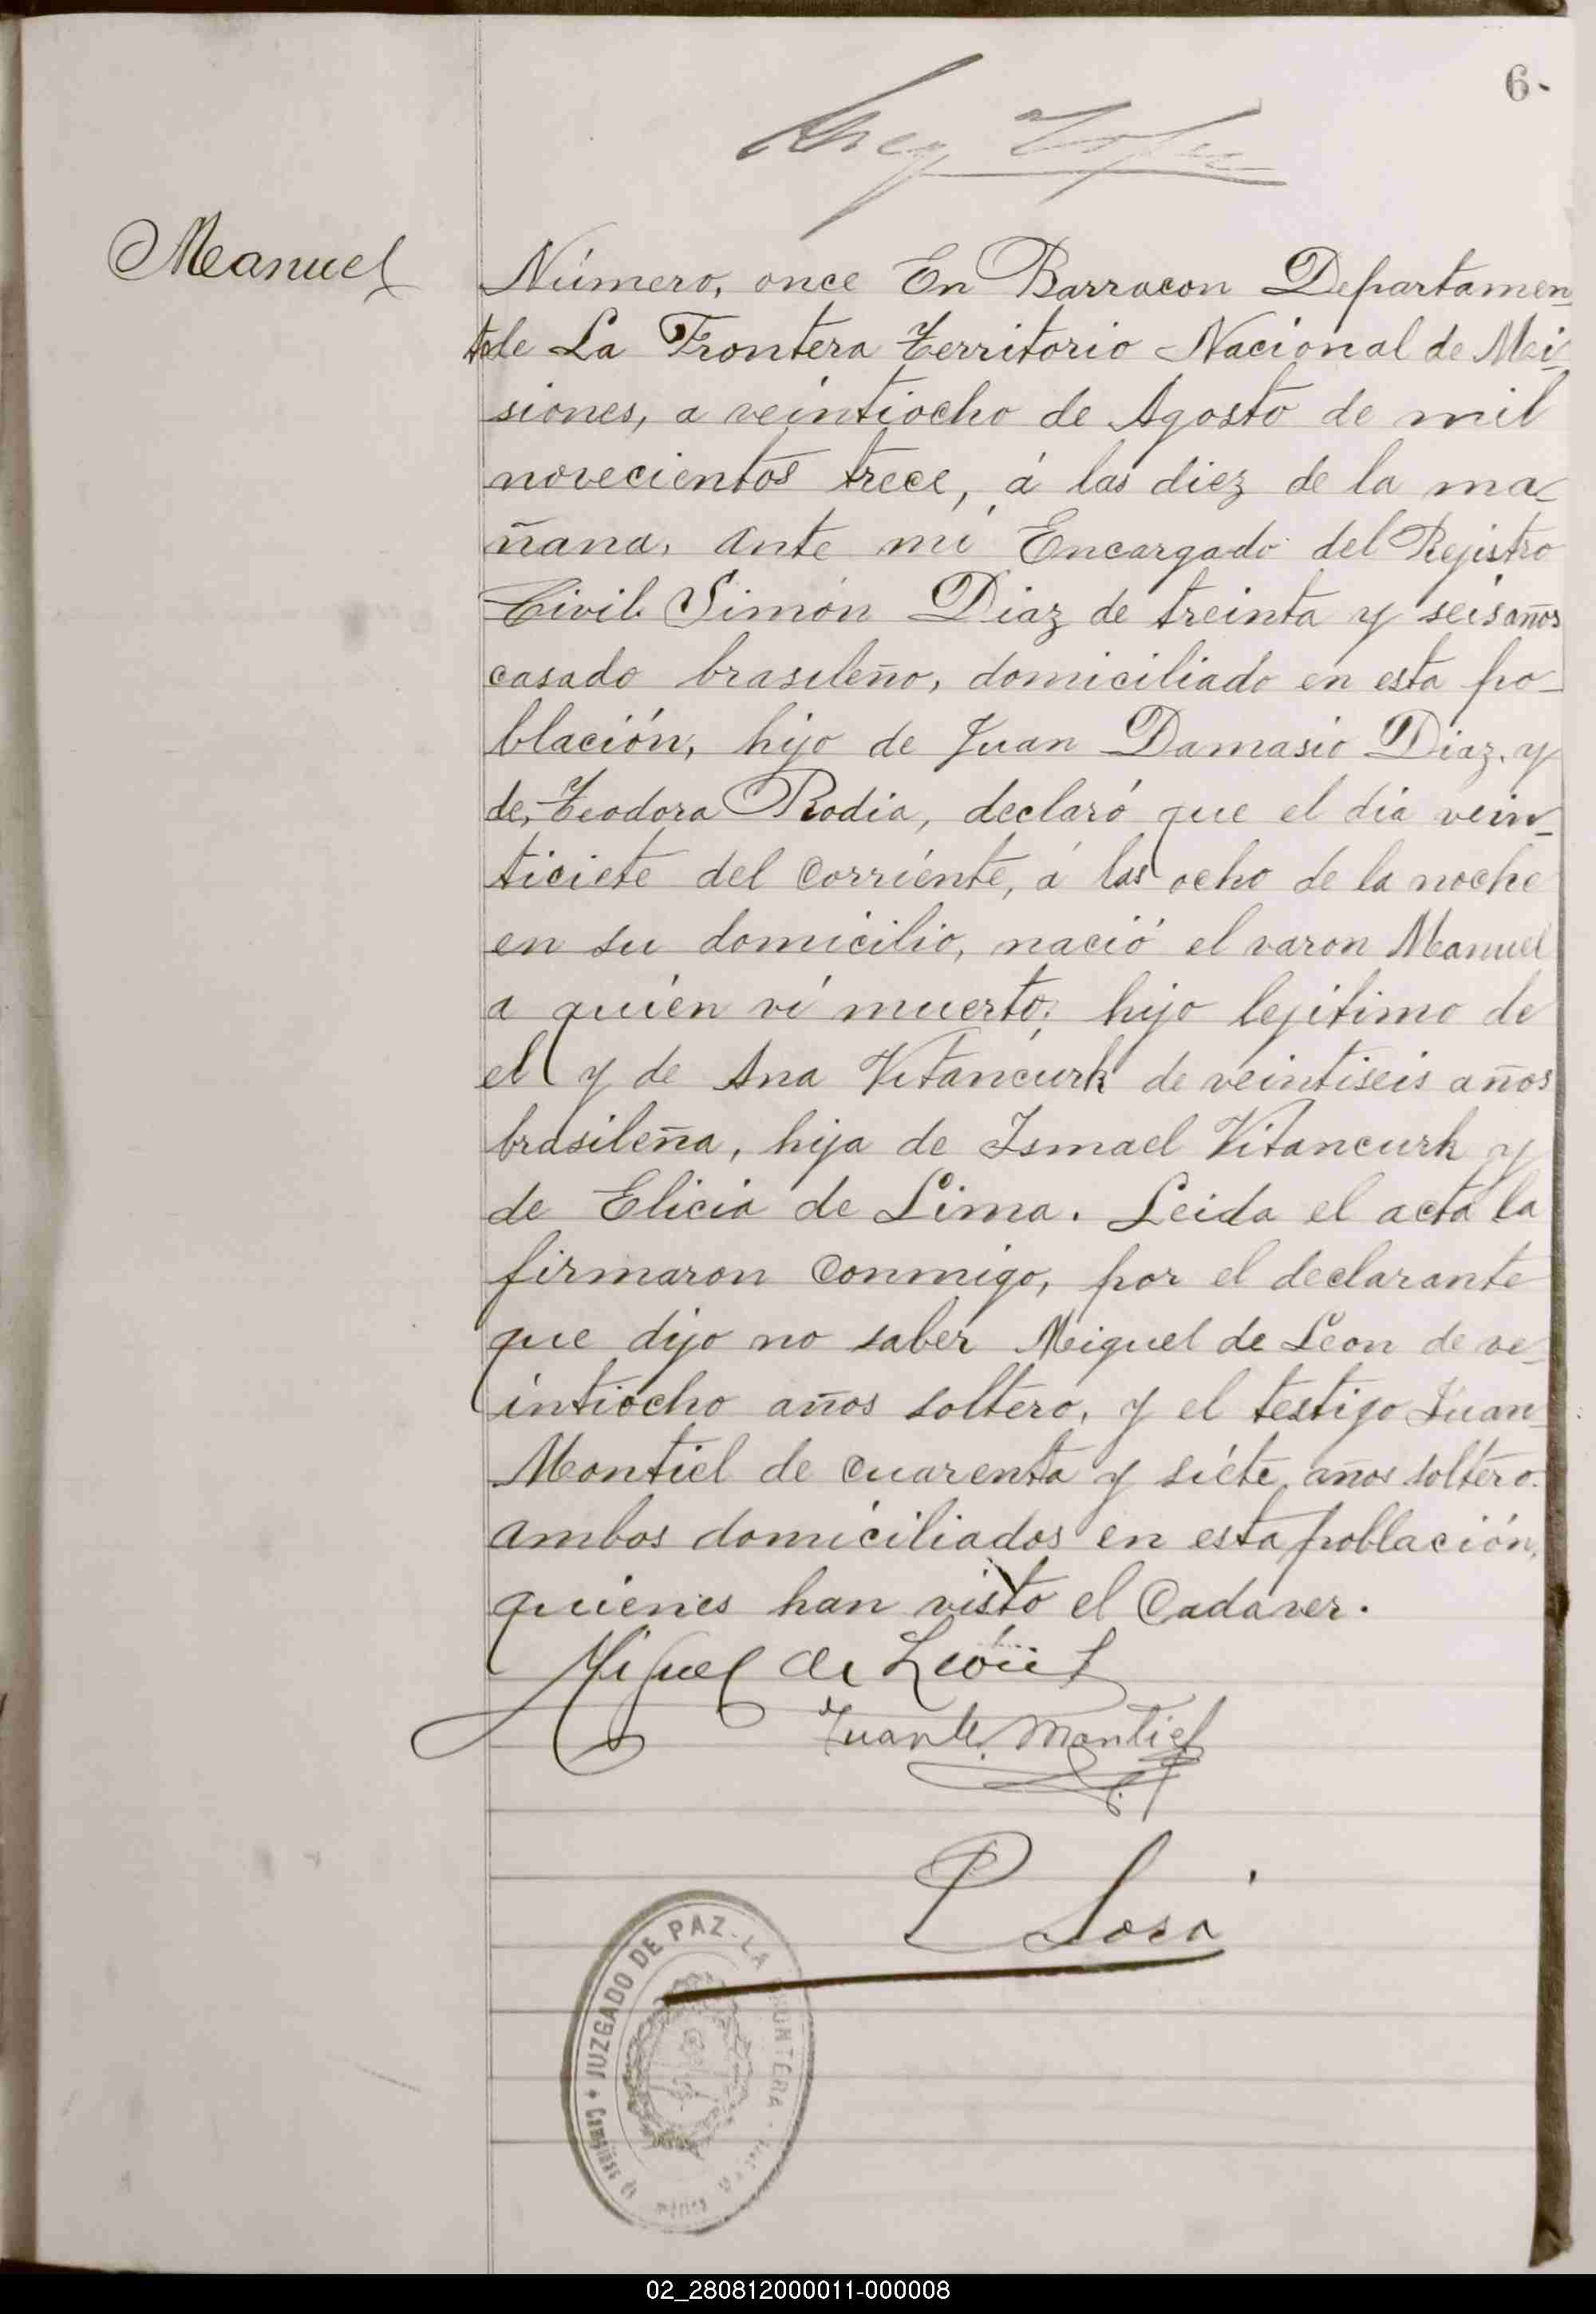 6.
Manuel
Número, once En Barracon Departamen
to de La Frontera Territorio Nacional de Mi
siones, a veintiocho de Agosto de mil
novecientos trece, á las diez de la ma
ñana, ante mi Encargado del Rejistro
Civil Simón Diaz de treinta y seis años
casado brasileño, domiciliado en esta po-
blación, hijo de Juan Damasio Diaz, y
de, Teodora Rodia, declaró que el día vein-
ticiete del corriente, á las ocho de la noche
en su domicilio, nació el varon Manuel
a quien vi muerto, hijo lejitimo de
el y de Ana Vitancurk de veintiseis años
brasileña, hija de Ismael Vitancurk y
de Elicia de Lima. Leida el acta la
firmaron conmigo, por el declarante
que dijo no saber Miguel de Leon de ve-
intiocho años soltero, y el testigo Juan
Montiel de cuarenta y siete años soltero.
ambos domiciliados en esta población,
quienes han visto el Cadaver.
Miguel de León
Juan Montiel
P Sosa
JUZGADO DE PAZ - LA FRONTERA
02_280812000011-000008